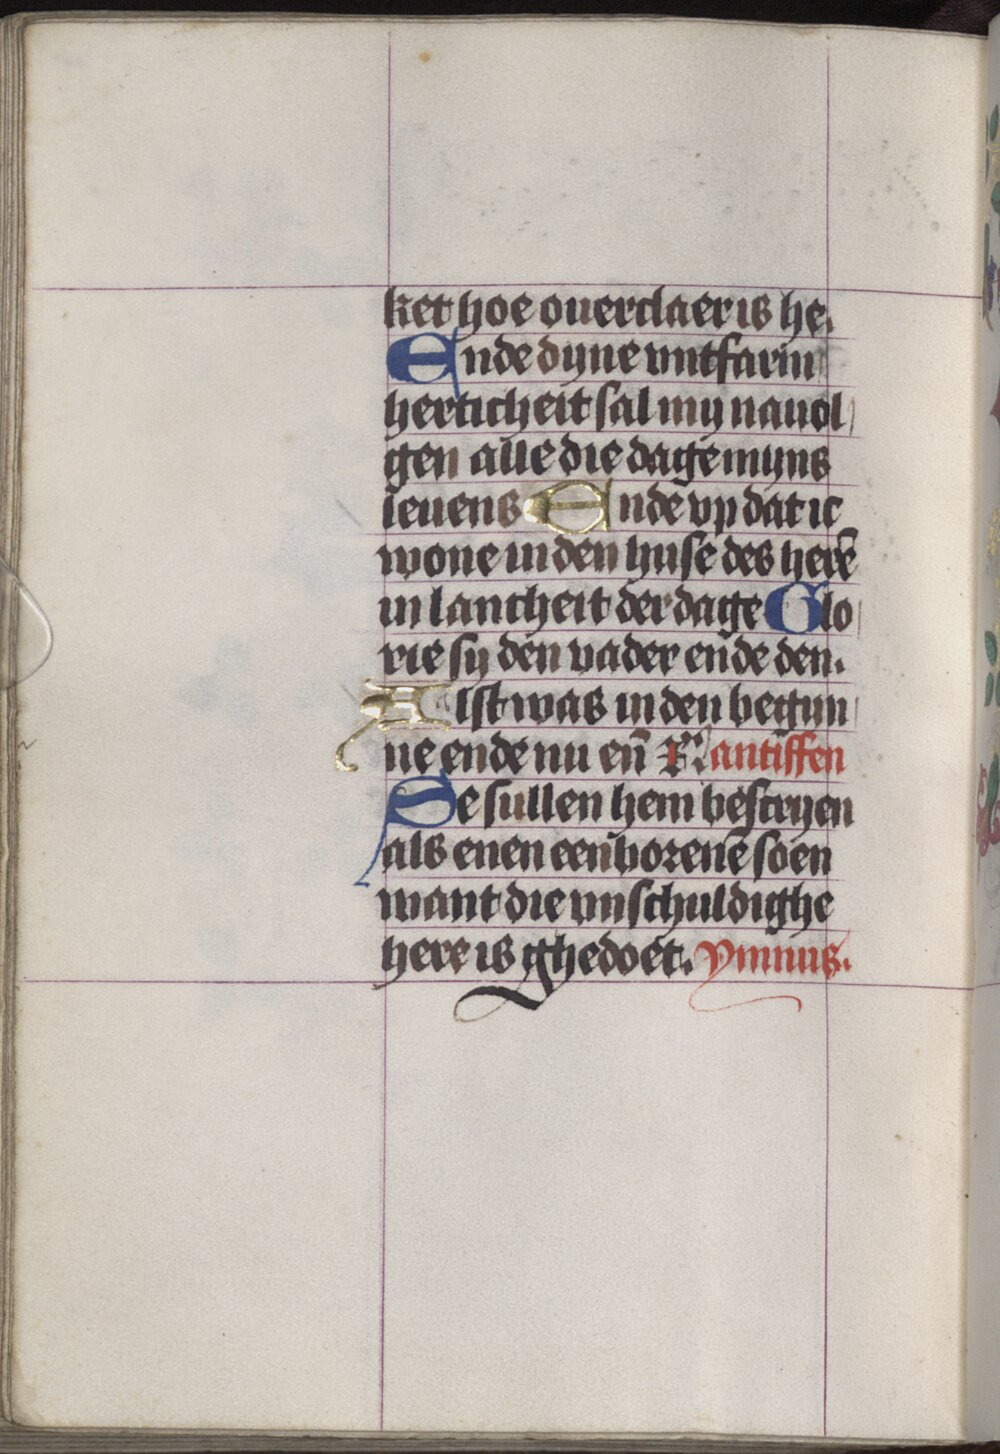 ket hoe ouerclaer is he.
Ende dyne vntfarm
herticheit sal my nauol
gen alle die dage myns
leuens Ende vp dat ic
wone in den huse des herē
in lancheit der dage Glo
rie sy den vader ende den.
Alst was in den begyn
ne ende nu en̄ antiffen
Se sullen hem bescryen
als enen eenborenē soen
want die vnschuldighe
here is ghedoet. ymnus.